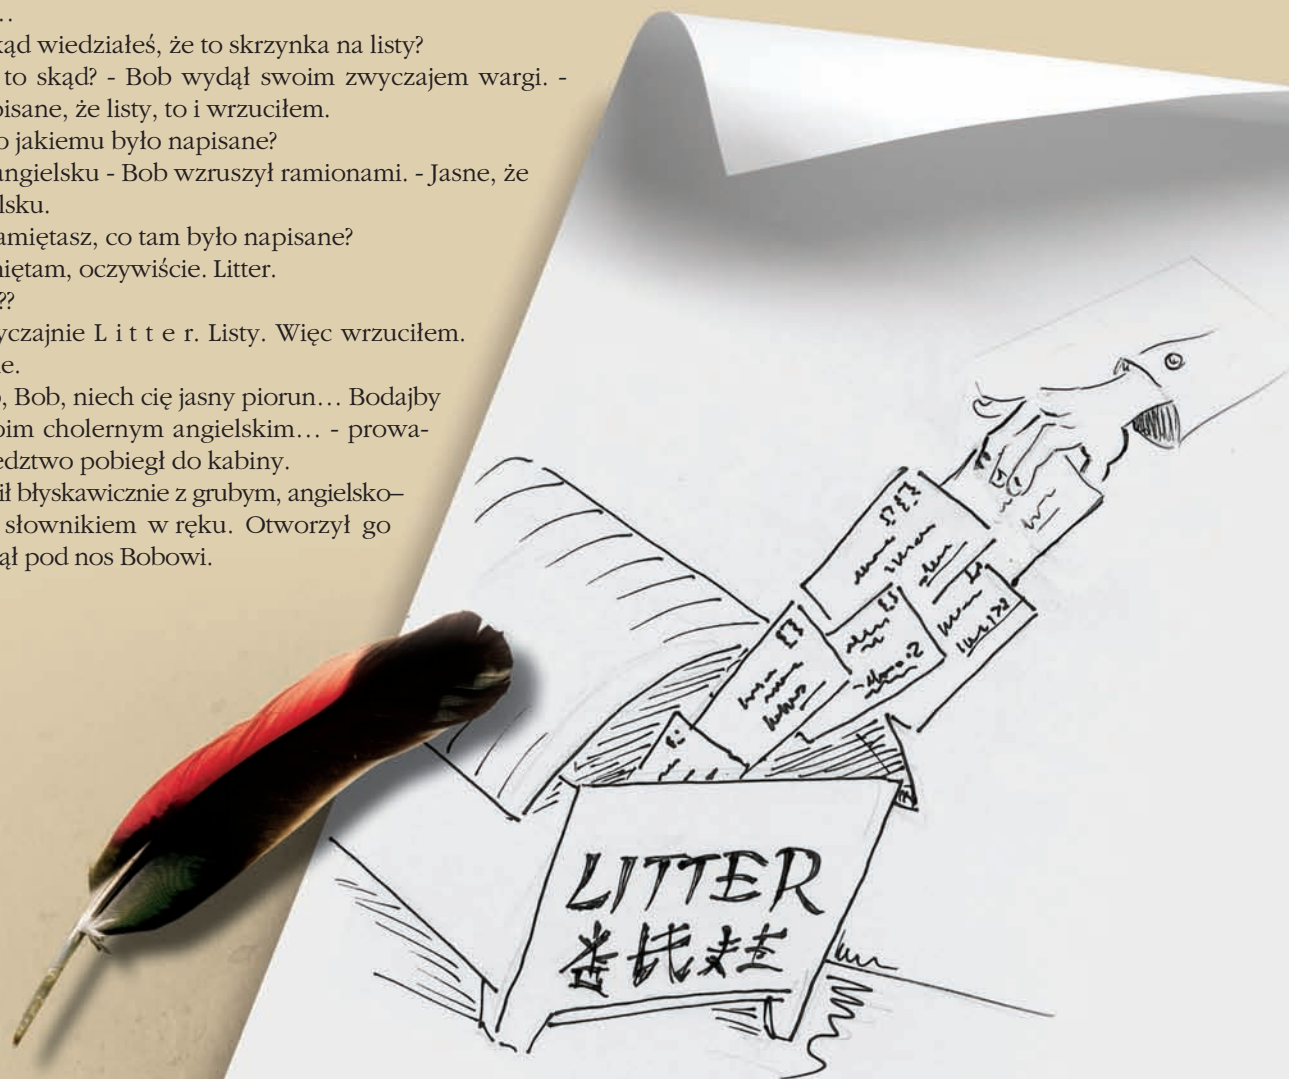 …
kąd wiedziałeś, że to skrzynka na listy?
to skąd? - Bob wydął swoim zwyczajem wargi. -
pisane, że listy, to i wrzuciłem.
o jakiemu było napisane?
angielsku - Bob wzruszył ramionami. - Jasne, że
elsku.
amiętasz, co tam było napisane?
niętam, oczywiście. Litter.
??
yczajnie L i t t e r. Listy. Więc wrzuciłem.
ie.
o, Bob, niech cię jasny piorun… Bodajby
oim cholernym angielskim… - prowa-
edztwo pobiegł do kabiny.
ił błyskawicznie z grubym, angielsko–
słownikiem w ręku. Otworzył go
ął pod nos Bobowi.
LITTER